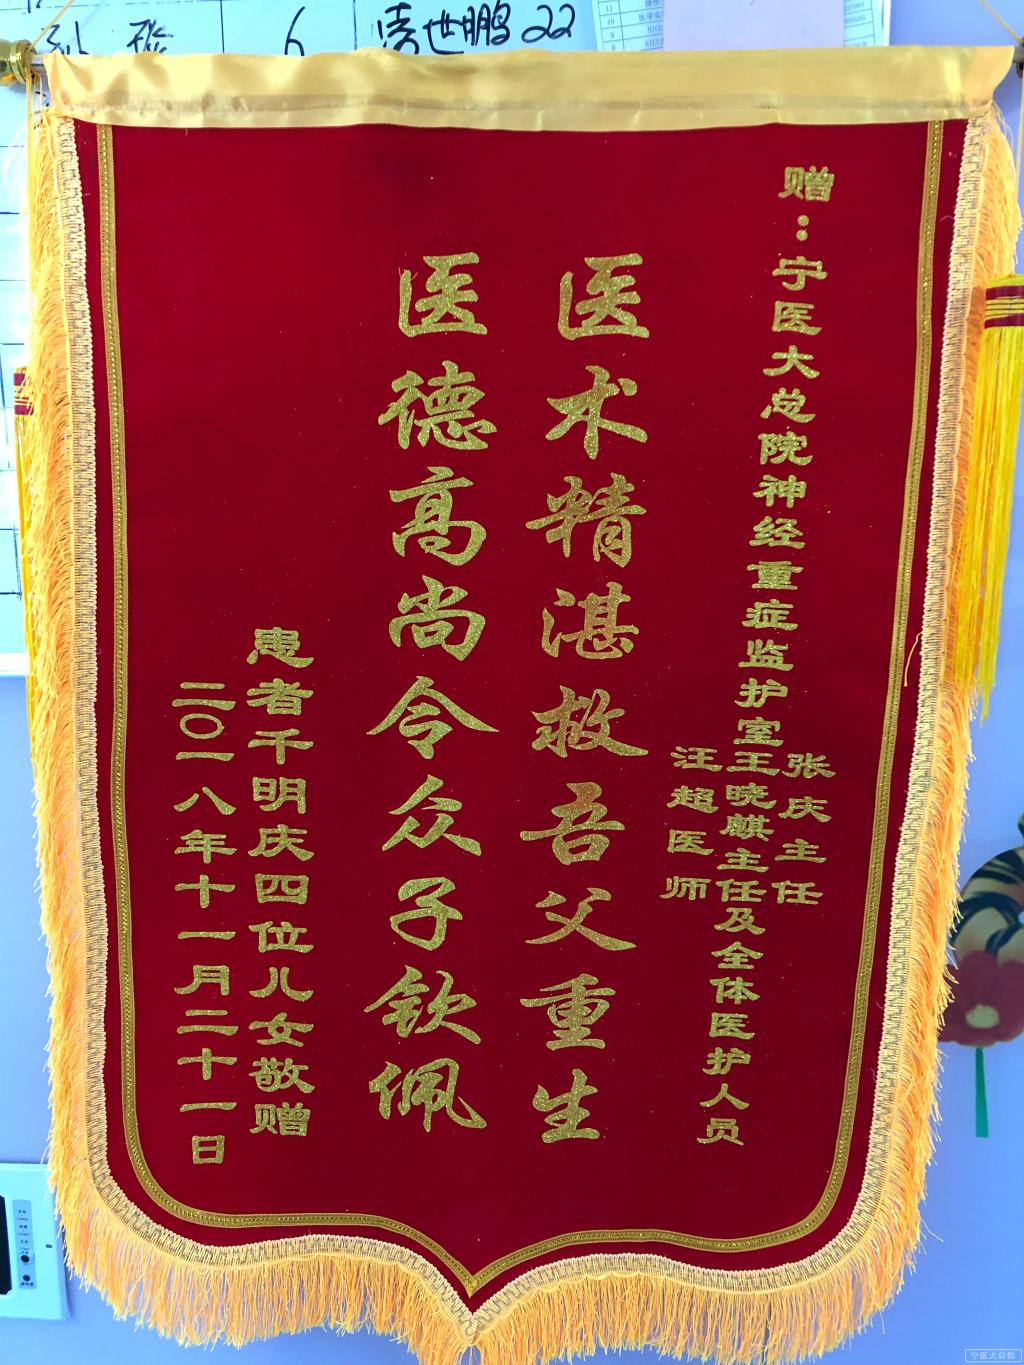 6
22
赠：宁医大总院神经重症监护室
张庆主任
王晓麒主任及全体医护人员
汪超医师
医术精湛救吾父重生
医德高尚令众子钦佩
患者千明庆四位儿女敬赠
二〇一八年十一月二十一日
宁医大总院